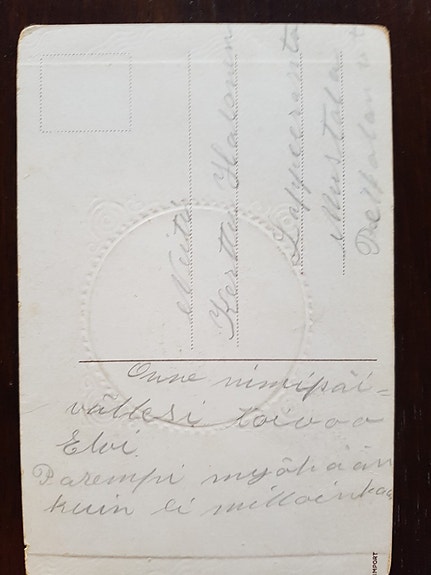 Neiti
Kerttu Halonen
Lappeenranta
Mustola
Onne nimipäi=
vällesi toivoo
Elvi.
Parempi myöhään
kuin ei milloinkaan
IMPORT